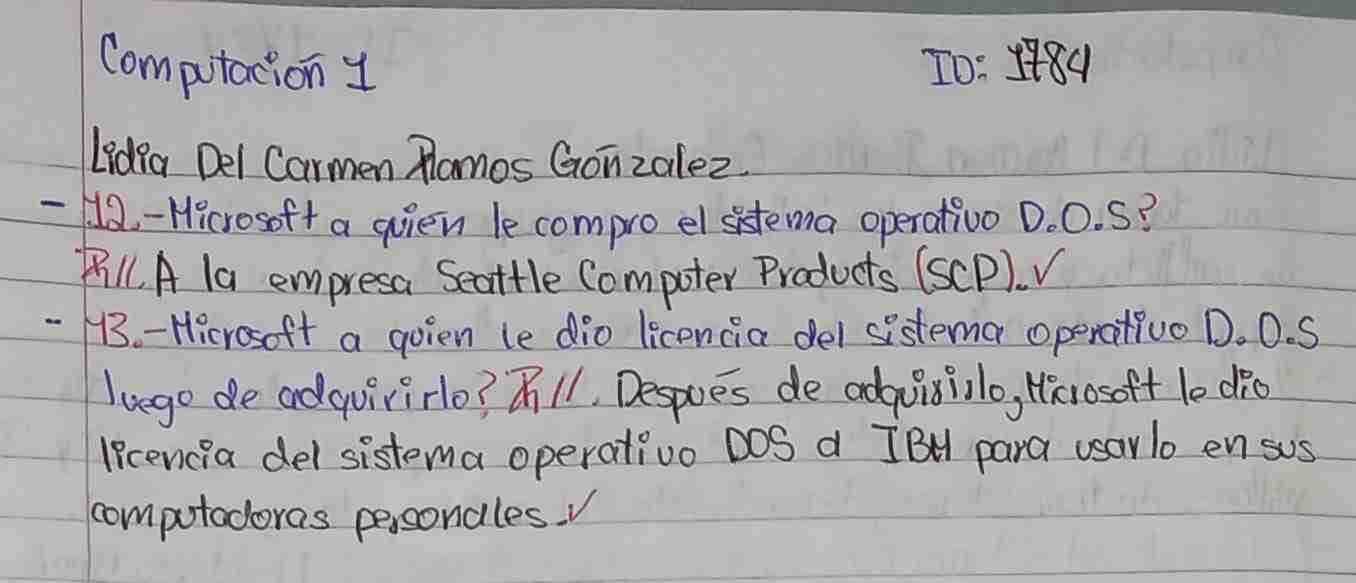 Computación 1 ID: 1784
Lidia Del Carmen Ramos González.
- 12.-Microsoft a quién le compro el sistema operativo D.O.S?
R//. A la empresa Seattle Computer Products (SCP).✓
- 13.-Microsoft a quien le dio licencia del sistema operativo D.O.S
luego de adquirirlo? R//. Después de adquirirlo, Microsoft le dio
licencia del sistema operativo DOS a IBM para usarlo en sus
computadoras personales.✓